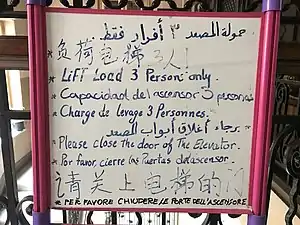 حمولة المصعد ٣ أفراد فقط
* 负荷电梯3人!
* Lift Load 3 Person only.
* Capacidad del ascensor 3 personas
* Charge de levage 3 Personnes.
* رجاء أغلاق أبواب المصعد
* Please close the door of The Elevator.
* Por favor, cierre las Puertas del ascensor.
请关上电梯的门
* PER FAVORE CHIUDERE LE PORTE DELL'ASCENSORE